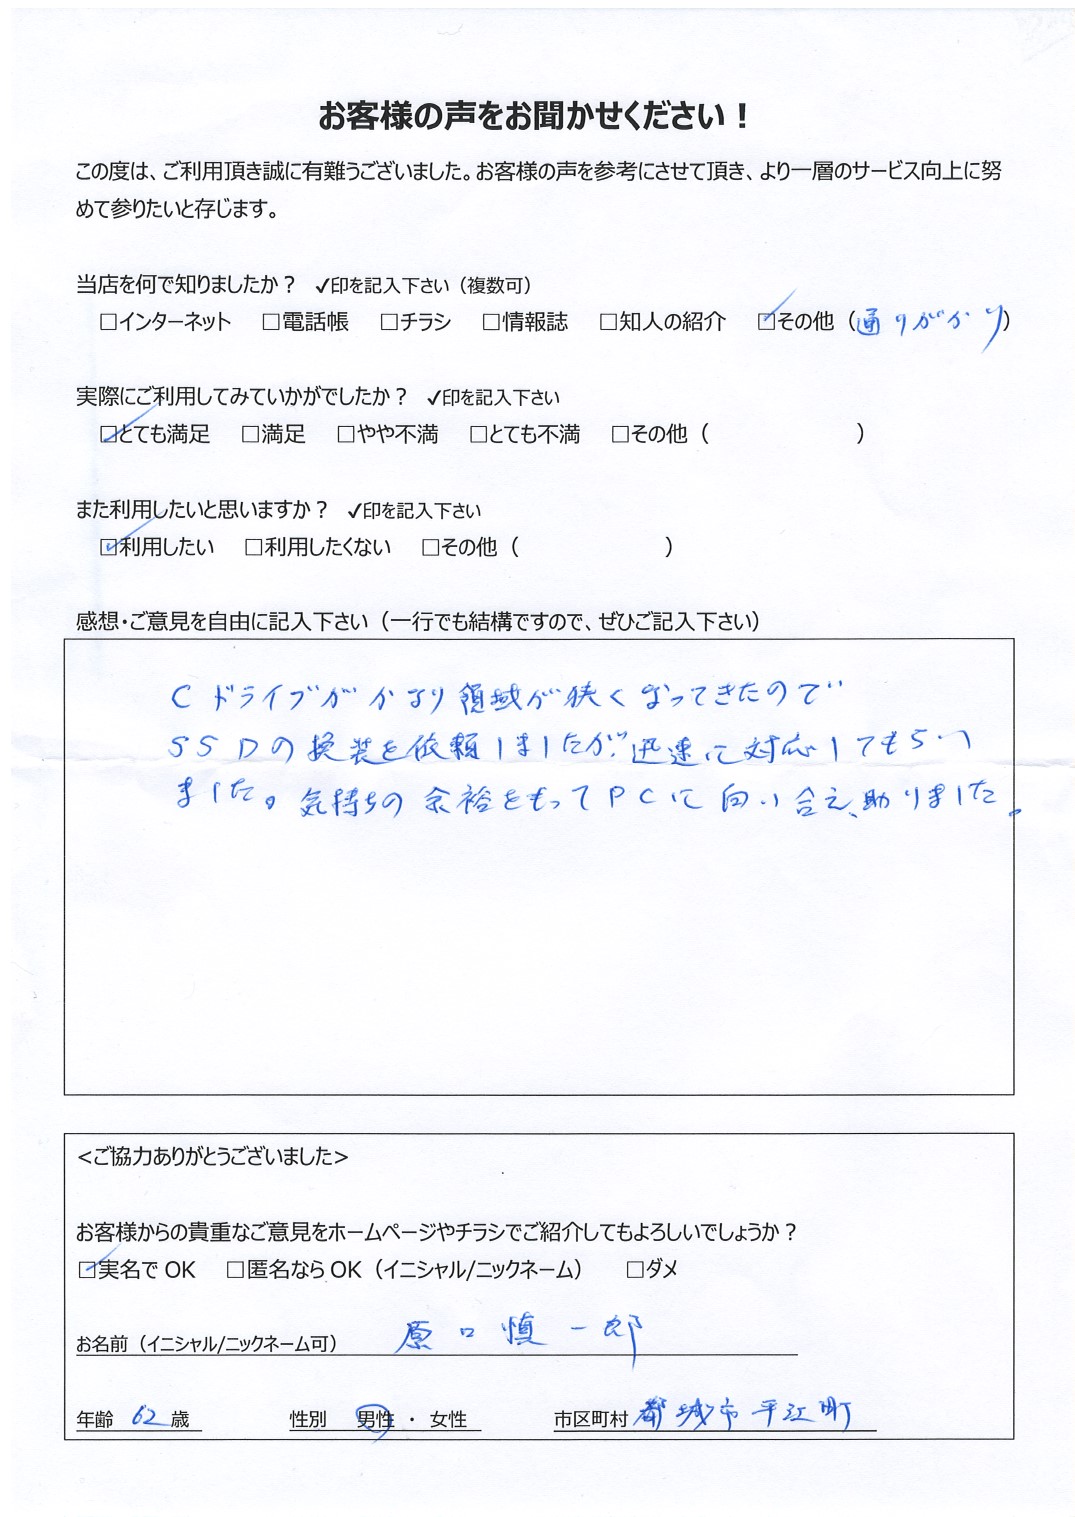 お客様の声をお聞かせください！
この度は、ご利用頂き誠に有難うございました。お客様の声を参考にさせて頂き、より一層のサービス向上に努
めて参りたいと存じます。
当店を何で知りましたか？ ✓印を記入下さい（複数可）
☐インターネット ☐電話帳 ☐チラシ ☐情報誌 ☐知人の紹介 ☑その他（通りがかり）
実際にご利用してみていかがでしたか？ ✓印を記入下さい
☑とても満足 ☐満足 ☐やや不満 ☐とても不満 ☐その他（ ）
また利用したいと思いますか？ ✓印を記入下さい
☑利用したい ☐利用したくない ☐その他（ ）
感想・ご意見を自由に記入下さい（一行でも結構ですので、ぜひご記入下さい）
Cドライブがかなり領域が狭くなってきたので
SSDの換装を依頼しましたが、迅速に対応してもらい
ました。気持ちの余裕をもってPCに向い合え、助りました。
<ご協力ありがとうございました>
お客様からの貴重なご意見をホームページやチラシでご紹介してもよろしいでしょうか？
☑実名で OK ☐匿名なら OK（イニシャル/ニックネーム） ☐ダメ
お名前（イニシャル/ニックネーム可） 原口慎一郎
年齢 62 歳 性別 男性 ・ 女性 市区町村 都城市平江町